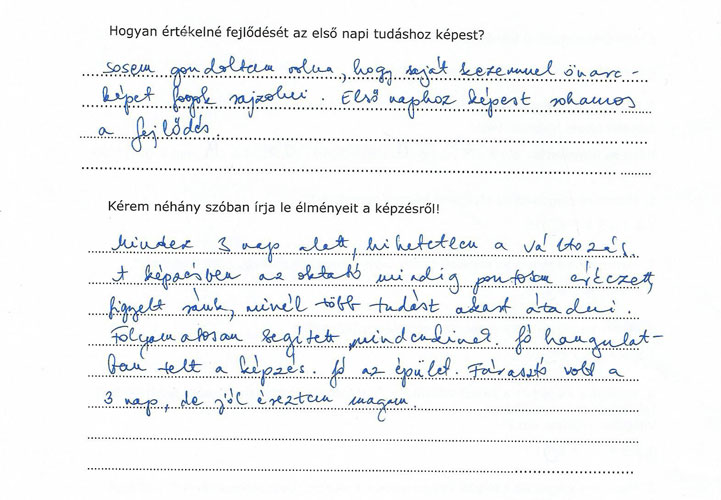 Hogyan értékelné fejlődését az első napi tudáshoz képest?
Sosem gondoltam volna, hogy saját kezemmel önarc-
képet fogok rajzolni. Első naphoz képest rohamos
a fejlődés.
Kérem néhány szóban írja le élményeit a képzésről!
Mindez 3 nap alatt, hihetetlen a változás.
A képzésben az oktató mindig pontosan érkezett,
figyelt ránk, minél több tudást akart átadni.
Folyamatosan segített mindenkinek. Jó hangulat-
ban telt a képzés. Jó az épület. Fárasztó volt a
3 nap, de jól éreztem magam.